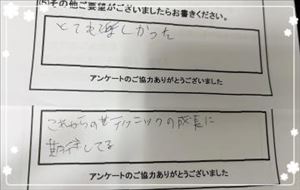 (5)その他ご要望がございましたらお書きください。
とても楽しかった
アンケートのご協力ありがとうございました
これからの
の成長に
期待してる
アンケートのご協力ありがとうございました